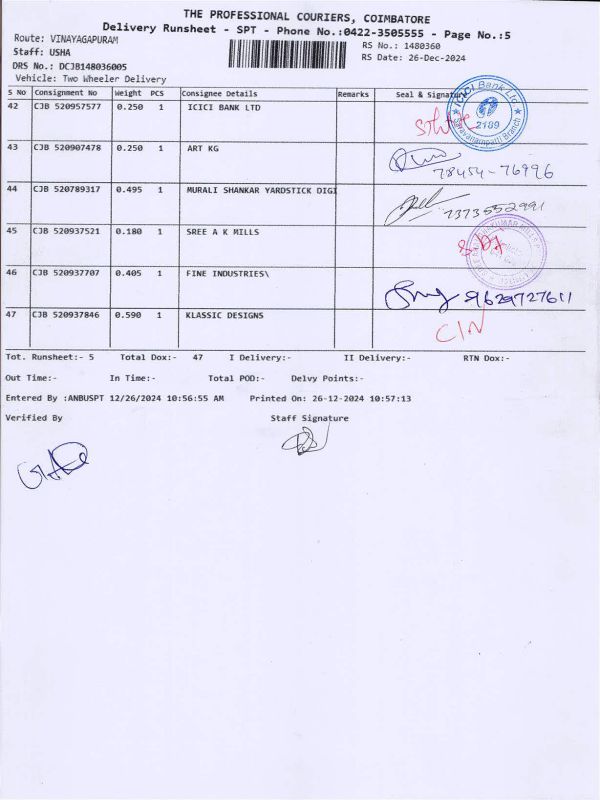 THE PROFESSIONAL COURIERS, COIMBATORE
Delivery Runsheet - SPT - Phone No.:0422-3505555 - Page No.:5
Route: VINAYAGAPURAM
RS No.: 1480360
Staff: USHA
RS Date: 26-Dec-2024
DRS No.: DCJB148036005
Vehicle: Two Wheeler Delivery
S No Consignment No Weight PCS Consignee Details Remarks Seal & Signature
42 CJB 520957577 0.250 1 ICICI BANK LTD
ICICI Bank Ltd
2189
Saravanampatti Branch
43 CJB 520907478 0.250 1 ART KG
78454-76996
44 CJB 520789317 0.495 1 MURALI SHANKAR YARDSTICK DIGI
7373552991
45 CJB 520937521 0.180 1 SREE A K MILLS
46 CJB 520937707 0.405 1 FINE INDUSTRIES\
9629727611
47 CJB 520937846 0.590 1 KLASSIC DESIGNS
CIN
Tot. Runsheet:- 5 Total Dox:- 47 I Delivery:- II Delivery:- RTN Dox:-
Out Time:- In Time:- Total POD:- Delvy Points:-
Entered By :ANBUSPT 12/26/2024 10:56:55 AM Printed On: 26-12-2024 10:57:13
Verified By Staff Signature